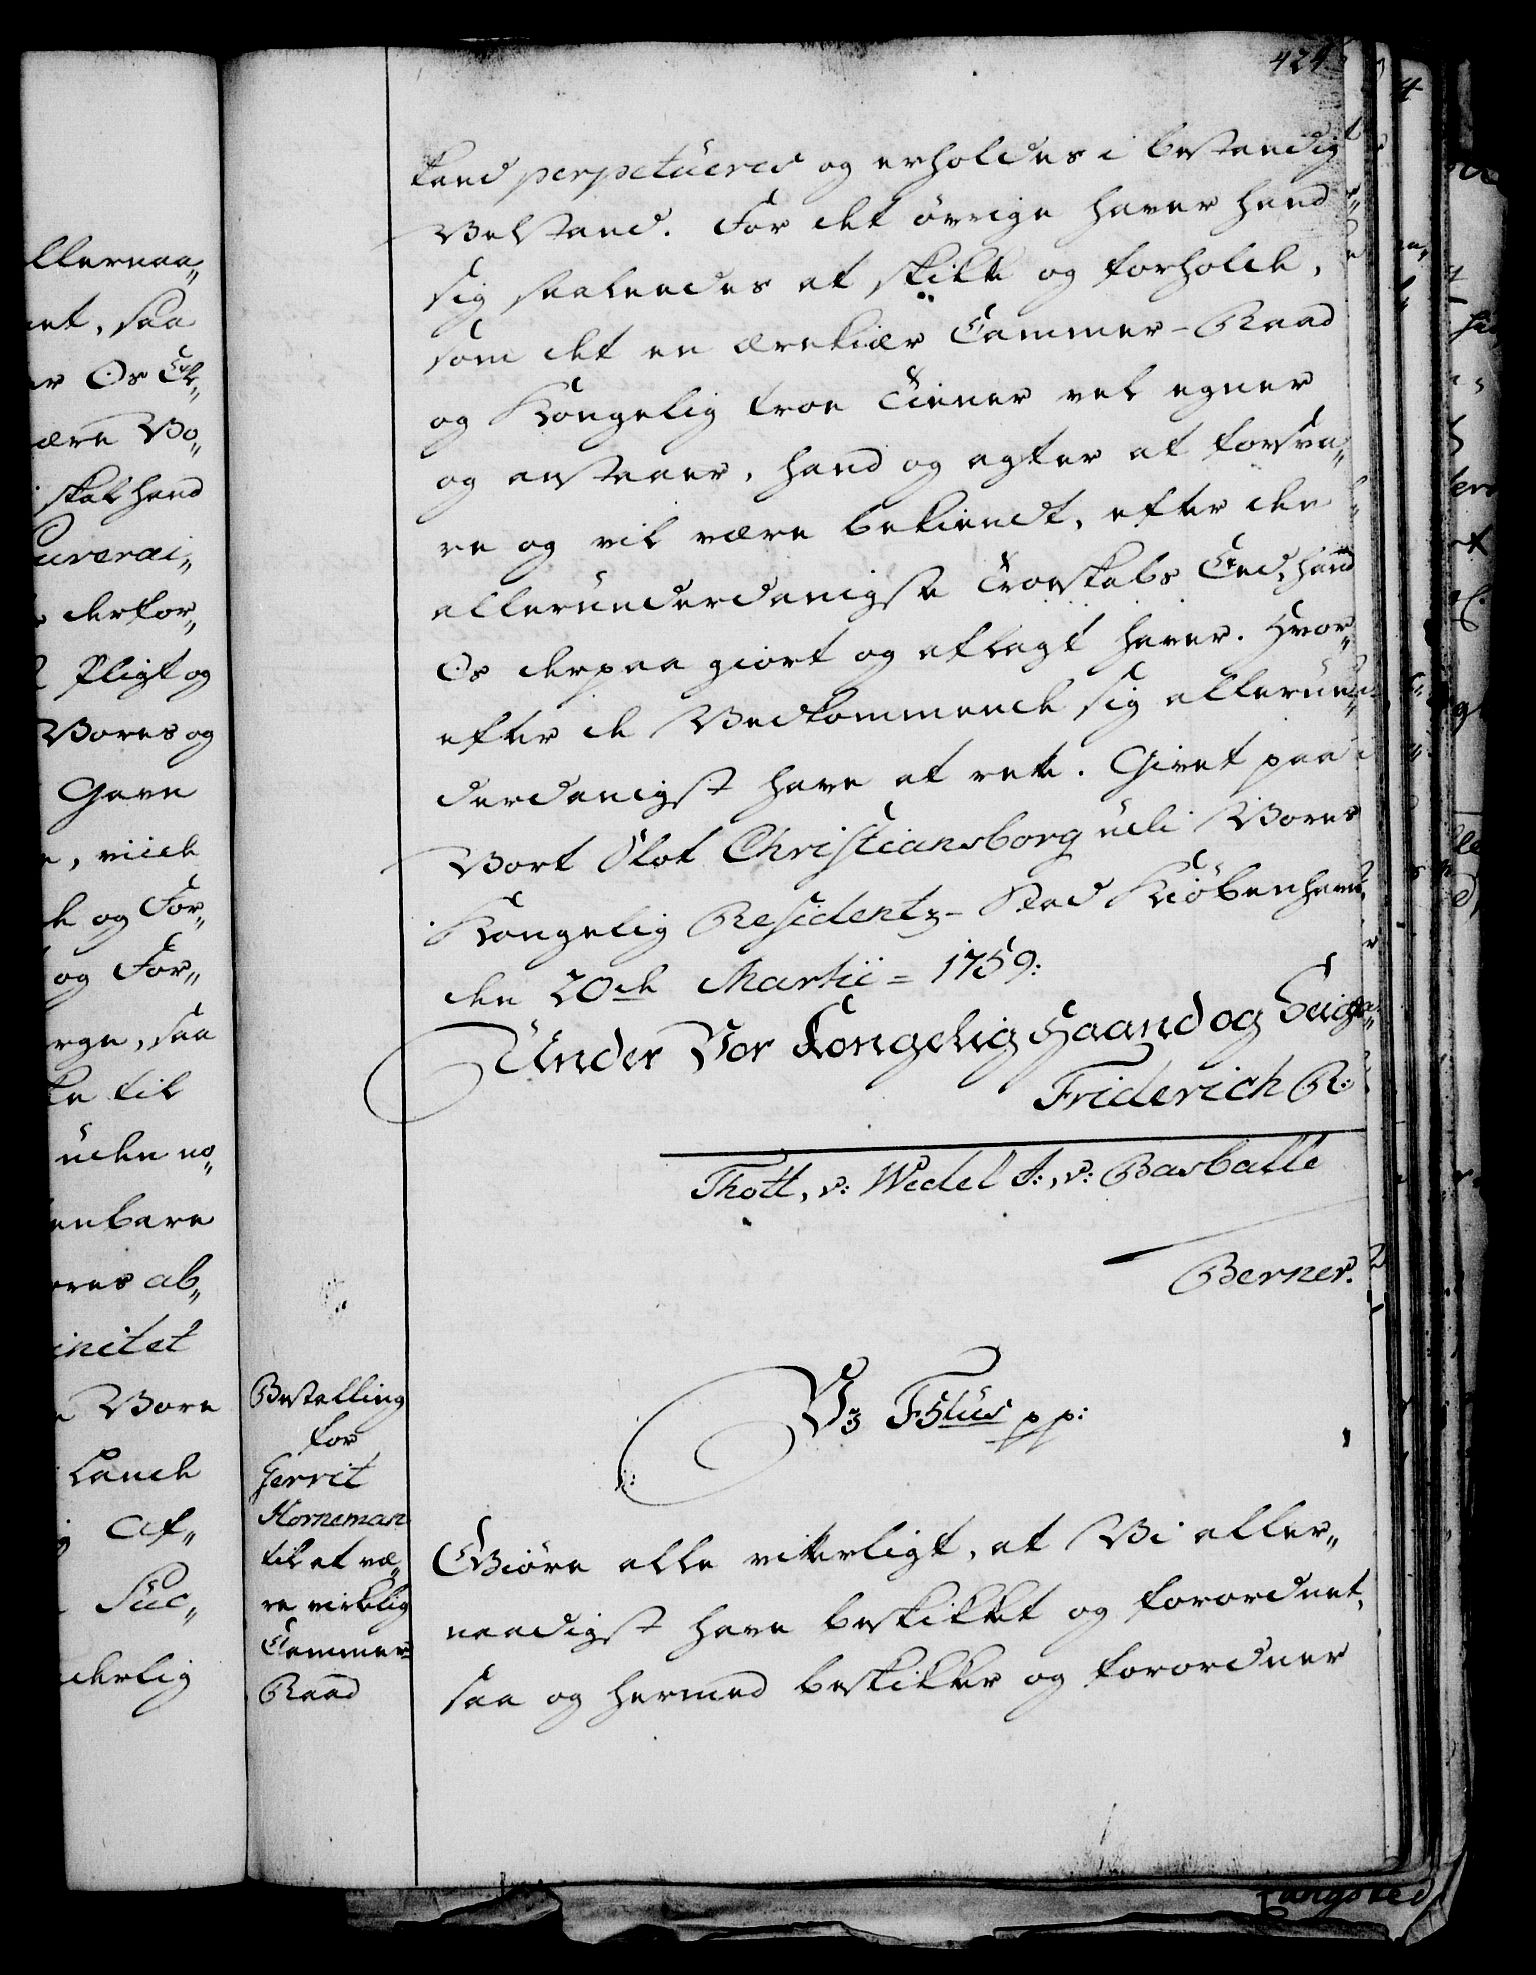 424
kand perpetueres og erholdes i bestandig
Velstand. For det øvrige haver hand
sig saaledes at skikke og forholde,
som det en ærekiær Cammer-Raad
og Kongelig troe Tiener vel egner
og anstaaer, hand og agter at forsva„
re og vil være bekiendt, efter den
allerunderdanigste Troeskabs Eed, hand
Os derpaa giort og aflagt haver. Hvor„
efter de Vedkommende sig allerun„
derdanigst have at rette. Givet paa
Vort Slot Christiansborg udi Vores
Kongelig Residentz-Stad Kiöbenhavn,
den 20de Martii = 1759:
Under Vor Kongelig Haand og Seigl
Friderich R:
Thott, v: Wedel F:, v: Barballe
Berner.
Bestalling
for
Gerrit
Horneman
til at væ„
re virkelig
Cammer=
Raad
Vz F5tus pp:
Giöre alle vitterligt, at Vi aller„
naadigst have beskikket og forordnet,
saa og hermed beskikker og forordner
llernaa„
et, saa
r Os Er„
ære Vo„
skal hand
uverai„
derfor„
Pligt og
Vores og
Gavn
, viide
de og For„
og For„
rge, saa
ke til
uden no„
enbare
ores ab„
initet
Vore
Lande
Af„
Suc„
derlig